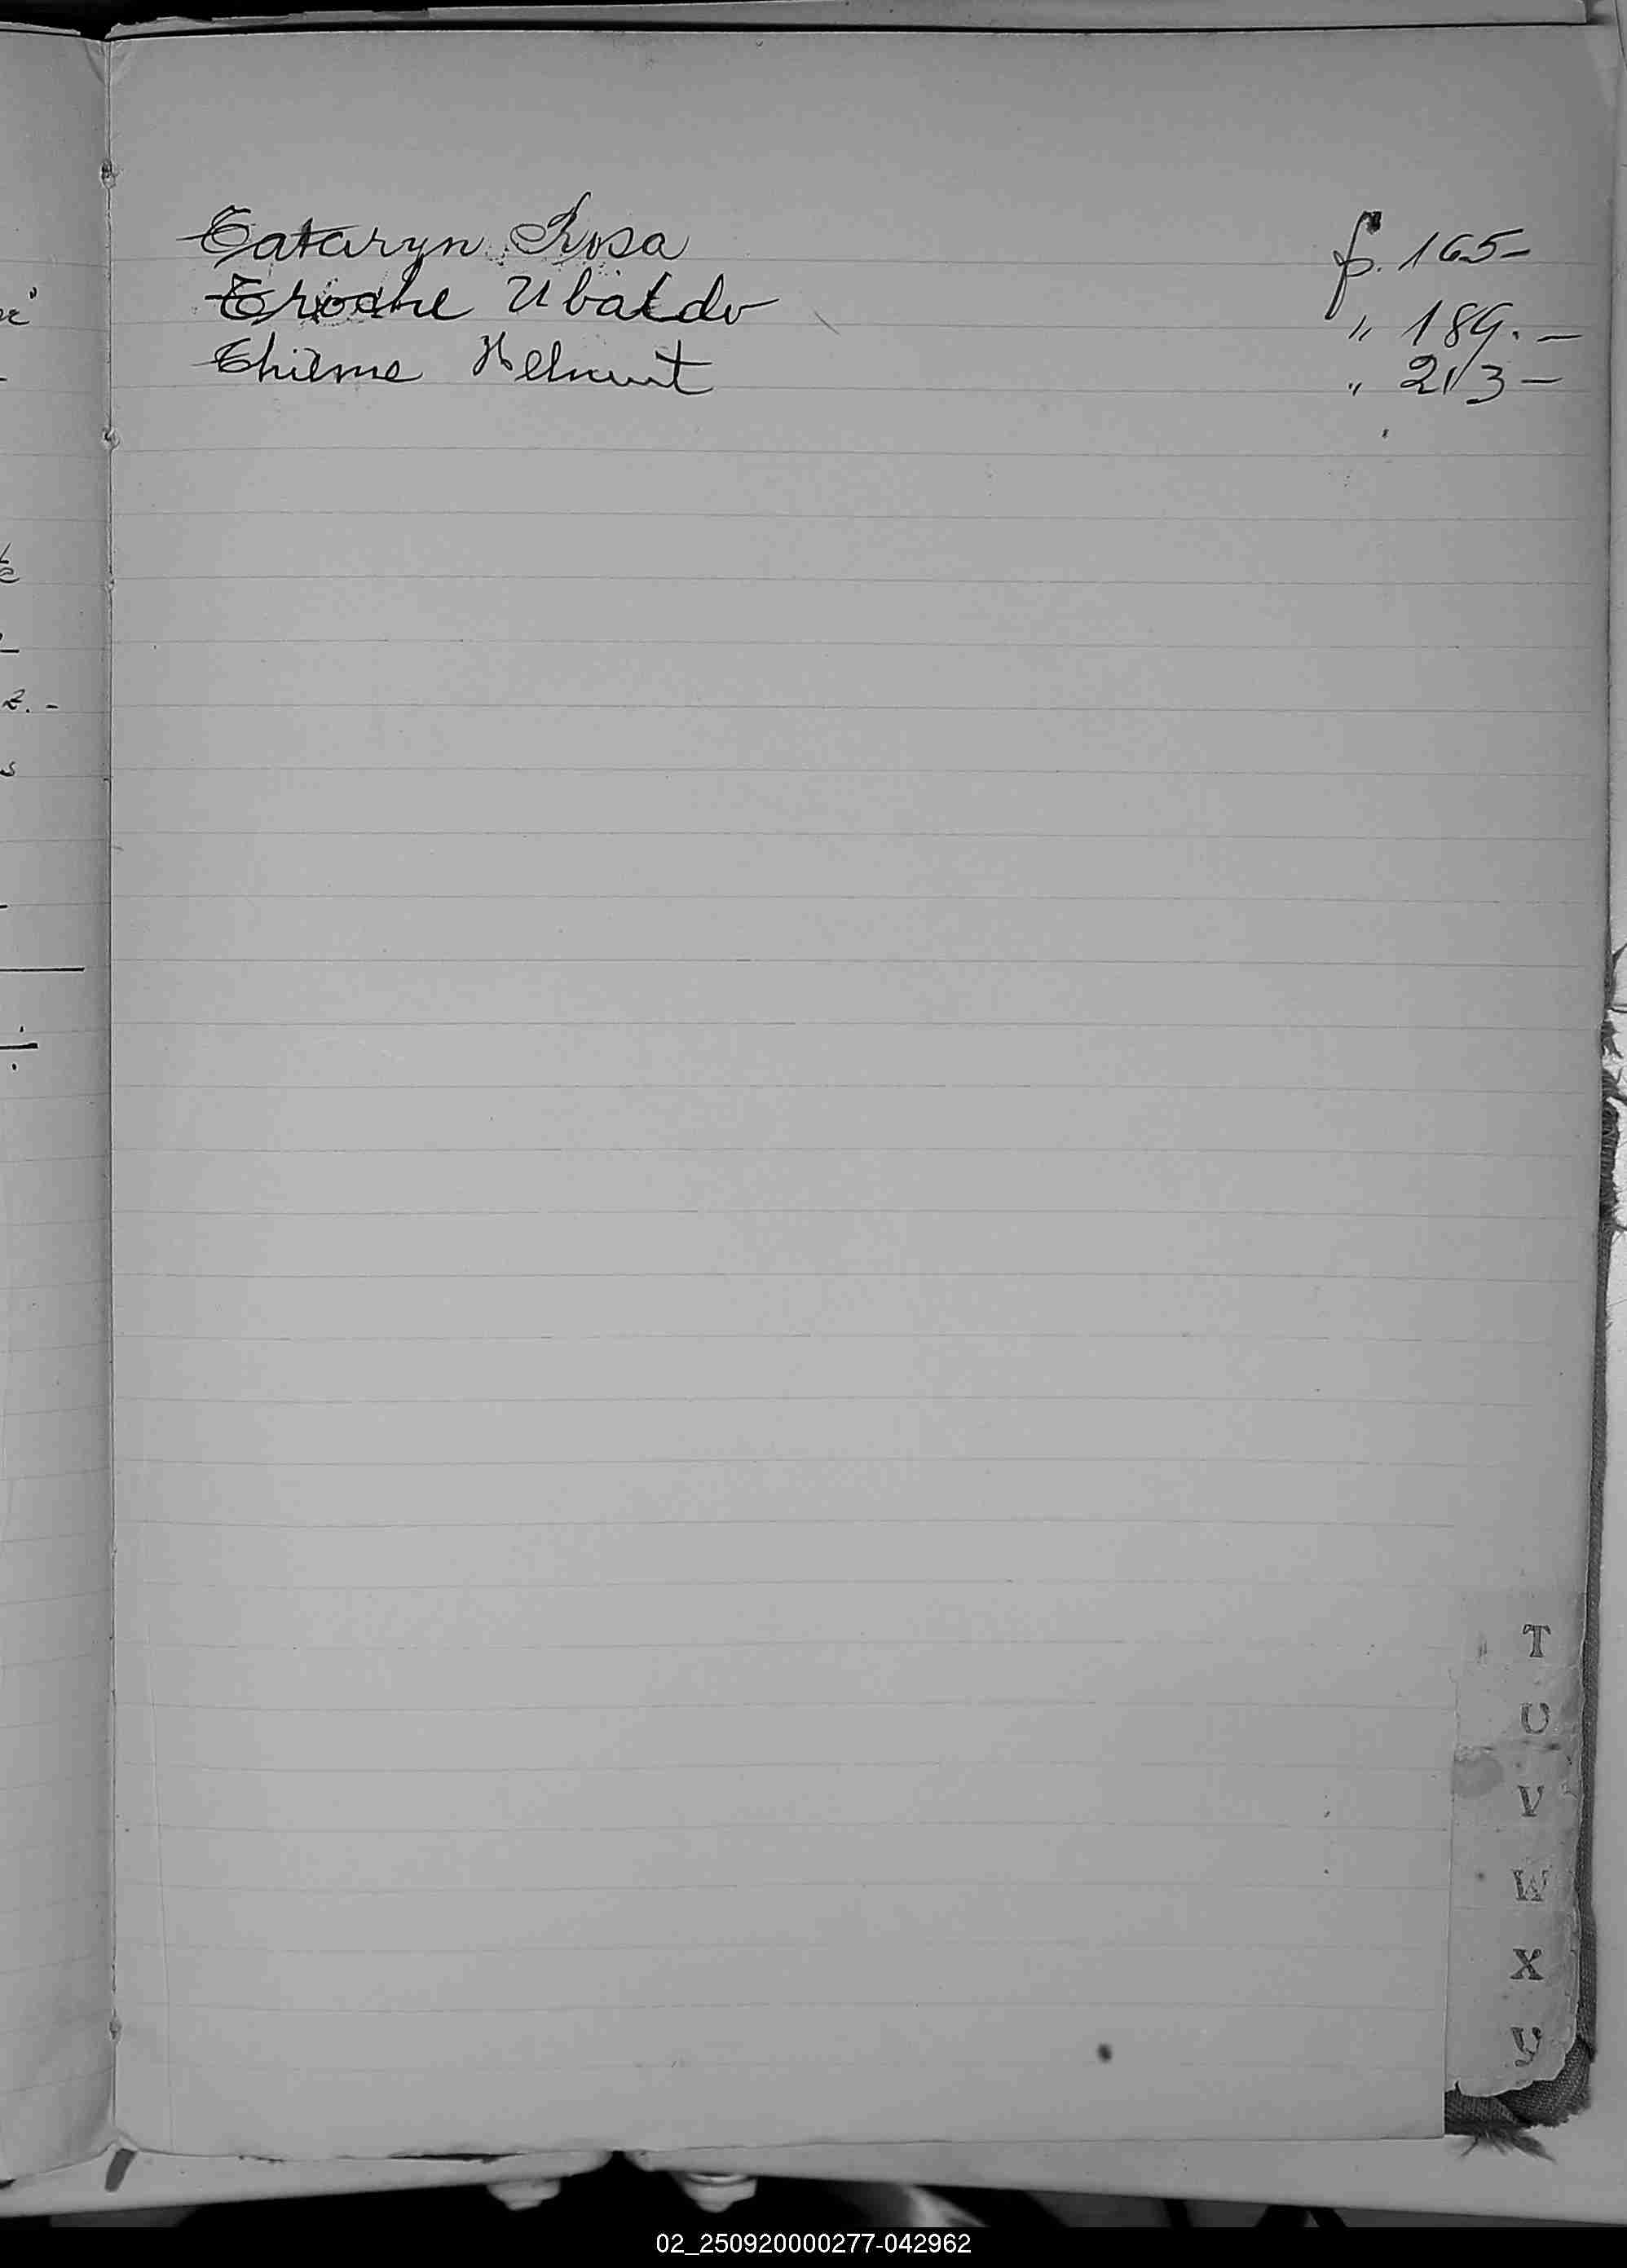 Tataryn Rosa f. 165-
Troche Ubaldo " 189.-
Thieme Helmut " 213-
2. -
T
U
V
W
X
Y
02_250920000277-042962